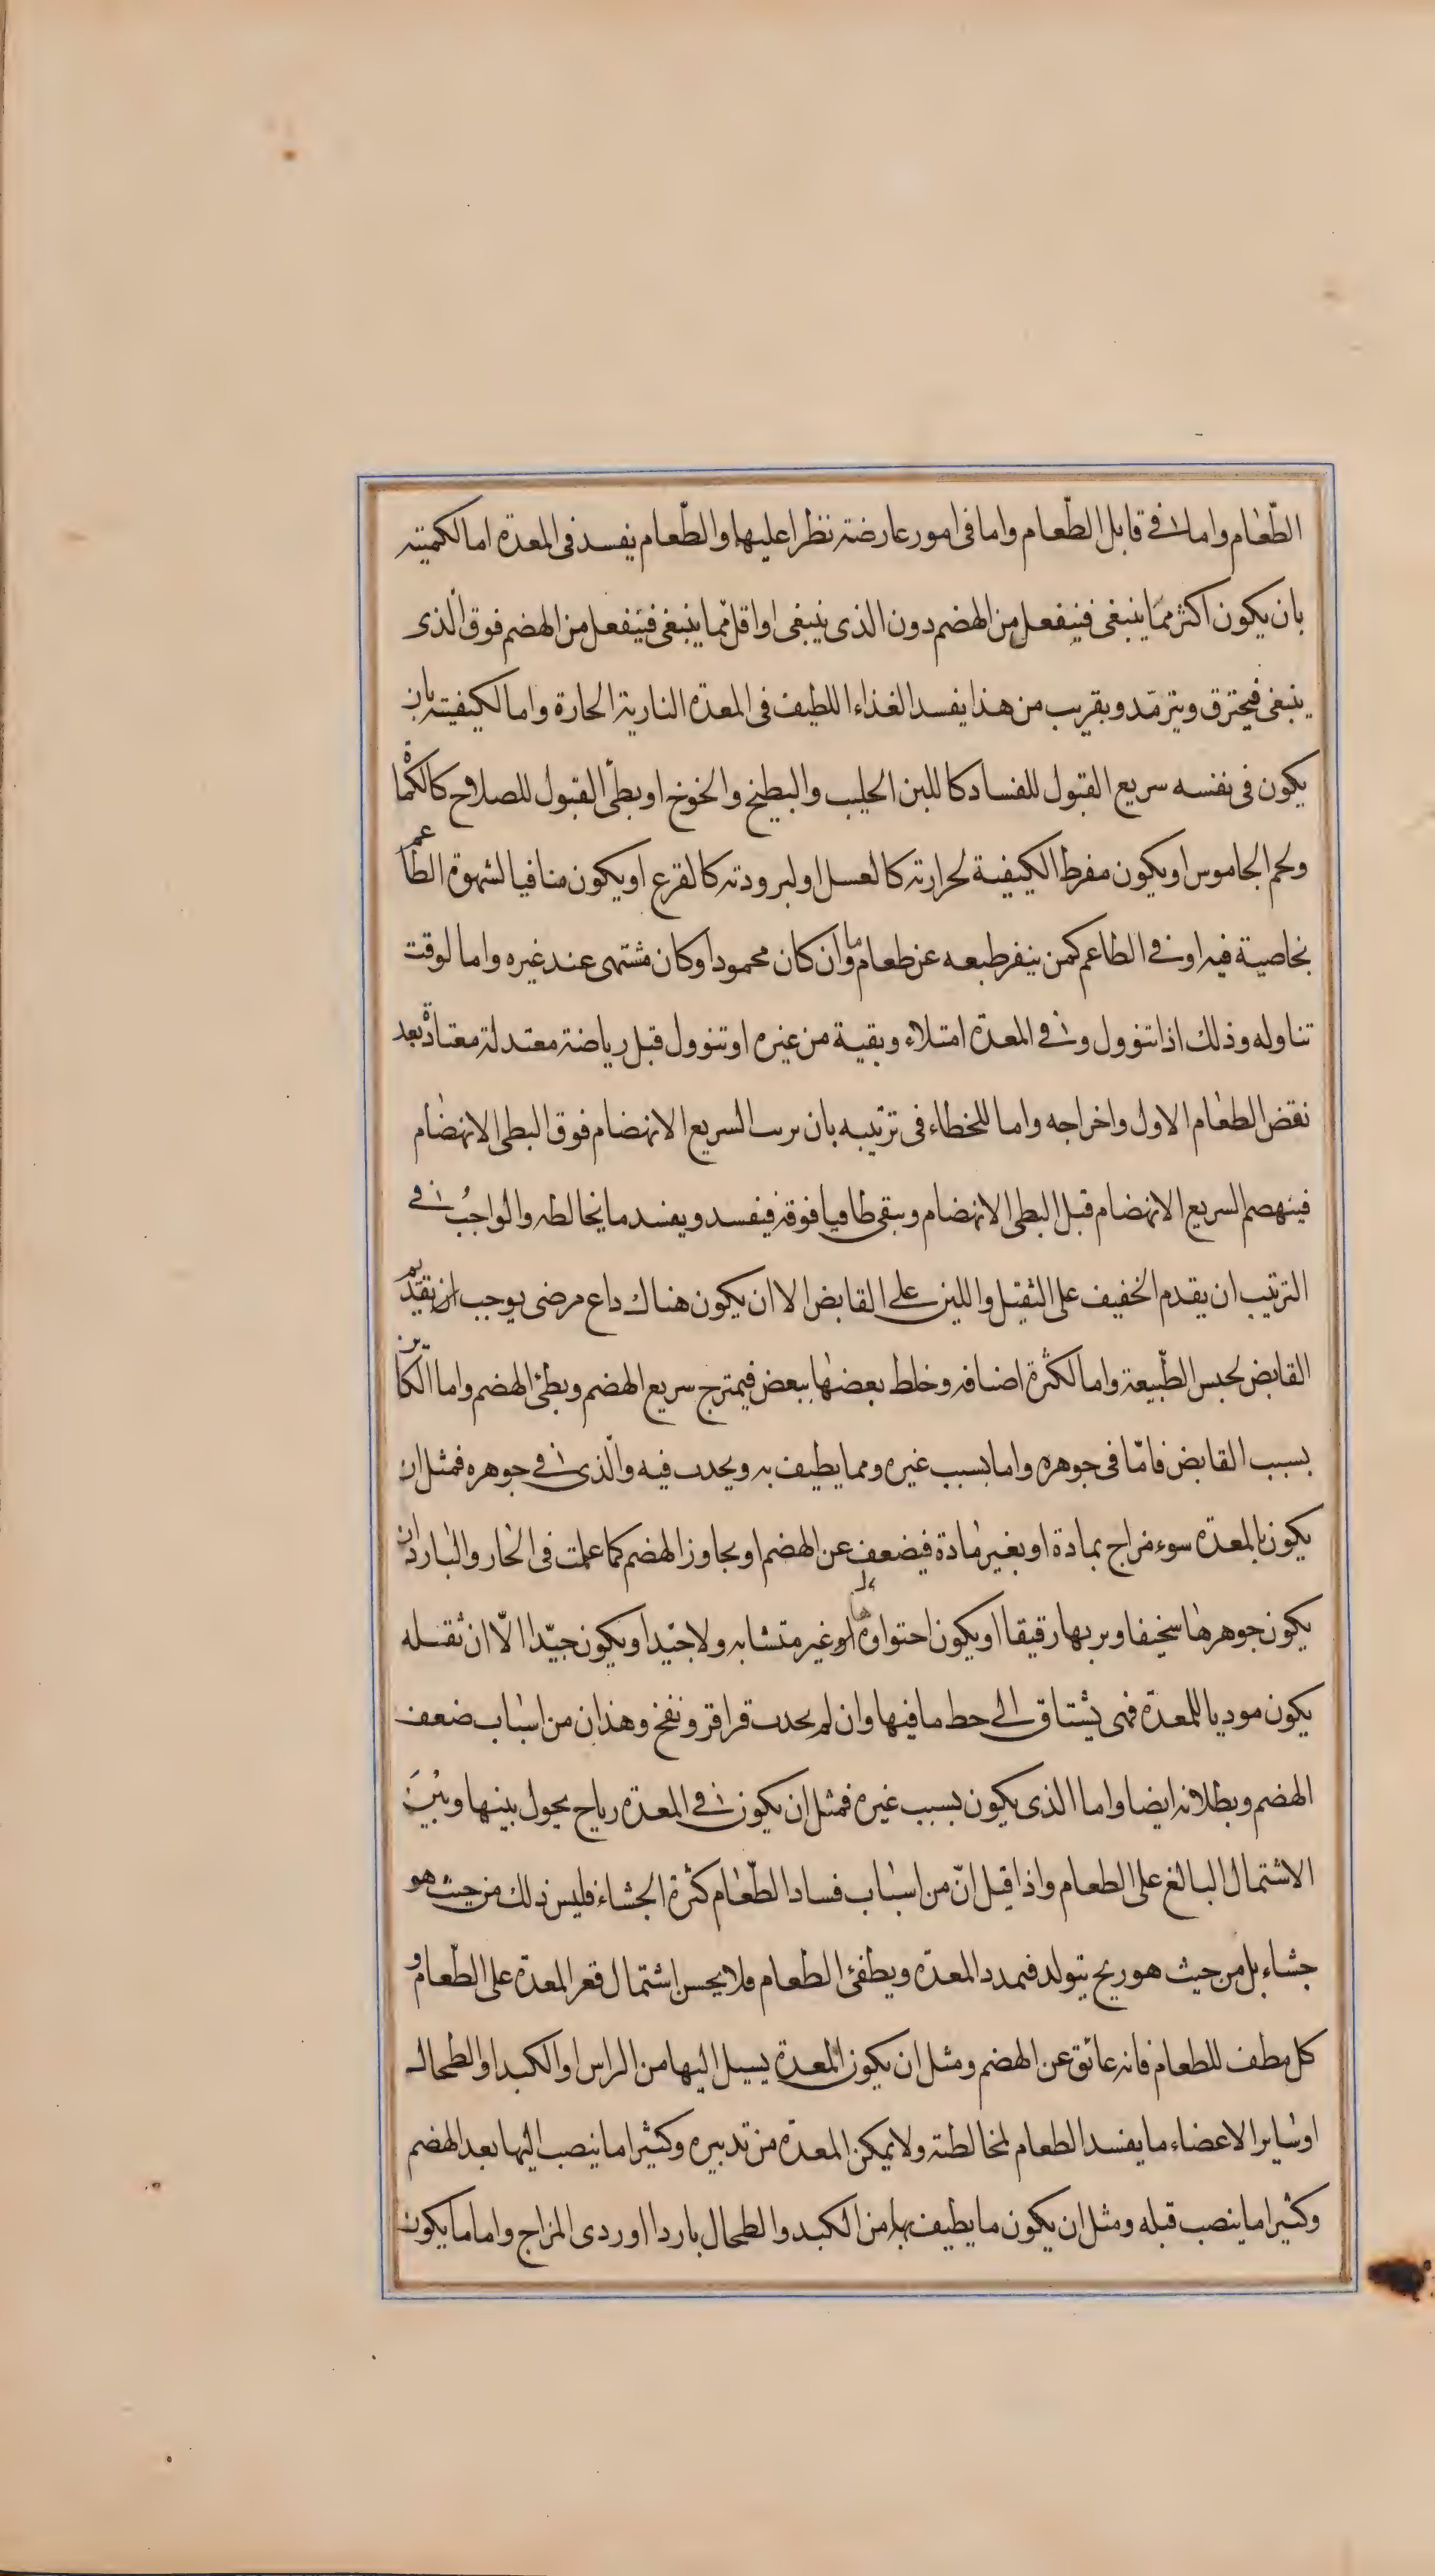 الطّعام واما فى قابل الطّعام واما فى امور عارضة تطرا عليها والطّعام يفسد فى المعدة اما لكميته
بان يكون اكثر ممّا ينبغى فينفعل من الهضم دون الذى ينبغى او اقل ممّا ينبغى فينفعل من الهضم فوق الّذى
ينبغى فيحترق ويترمّد وبقريب من هذا يفسد الغذاء اللطيف فى المعدّه النارية الحارة واما لكيفيته بان
يكون فى نفسه سريع القبول للفساد كاللبن الحليب والبطيخ والخوخ او بطئ القبول للصلاح كالكماة
ولحم الجاموس او يكون مفرط الكيفية لحرارته كالعسل او لبرودته كالقرع او يكون منافيا لشهوة الطّاعم
بخاصية فيه او فى الطاعم كمن ينفر طبعه عن طعام ما وان كان محمودا وكان مشتهى عند غيره واما لوقت
تناوله وذلك اذا تنوول وفى المعدّه امتلاء وبقية من غيره او تنوول قبل رياضة معتدلة معتادة بعد
نقض الطعام الاول واخراجه واما للخطاء فى ترتيبه بان يرتب السريع الانهضام فوق البطى الانهضام
فينهضم السريع الانهضام قبل البطى الانهضام ويبقى طافيا فوقه فيفسد ويفسد ما يخالطه والواجب فى
الترتيب ان يقدم الخفيف على الثقيل واللين على القابض الا ان يكون هناك داع مرضى يوجب ان تقديم
القابض لحبس الطّبيعة واما لكثرة اصنافه وخلط بعضها ببعض فيمتزج سريع الهضم وبطئ الهضم واما الكاين
بسبب القابض فامّا فى جوهره واما بسبب غيره ومما يطيف به ويحدث فيه والّذى فى جوهره فمثل ان
يكون بالمعدّه سوء مزاج بمادة او بغير مادة فيضعف عن الهضم او يجاوز الهضم كما علمت فى الحار والبارد ان
يكون جوهرها سخيفا وبربها رقيقا او يكون احتواوها غير متشابه ولا جيدا ويكون جيّدا الّا ان ثقله
يكون موديا للمعدّة فهى يشتاق الى حط ما فيها وان لم يحدث قراقر ونفخ وهذان من اسباب ضعف
الهضم وبطلانه ايضا واما الذى يكون بسبب غيره فمثل ان يكون فى المعدّه رياح يحول بينها وبين
الاشتمال البالغ على الطعام واذا قيل انّ من اسباب فساد الطّعام كثرة الجشاء فليس ذلك من حيث هو
جشاء بل من حيث هو ريح يتولد فيمدد المعدّه ويطفئ الطعام فلا يحسن اشتمال قعر المعدّة على الطّعام و
كل مطف للطعام فانه عائق عن الهضم ومثل ان يكون المعدة يسيل اليها من الراس او الكبد او الطحال
او ساير الاعضاء ما يفسد الطعام لمخالطته ولا يمكن المعدّه من تدبيره وكثيرا ما ينصب اليها بعد الهضم
وكثيرا ما ينصب قبله ومثل ان يكون ما يطيف بها من الكبد والطحال باردا او ردى المزاج واما ما يكون